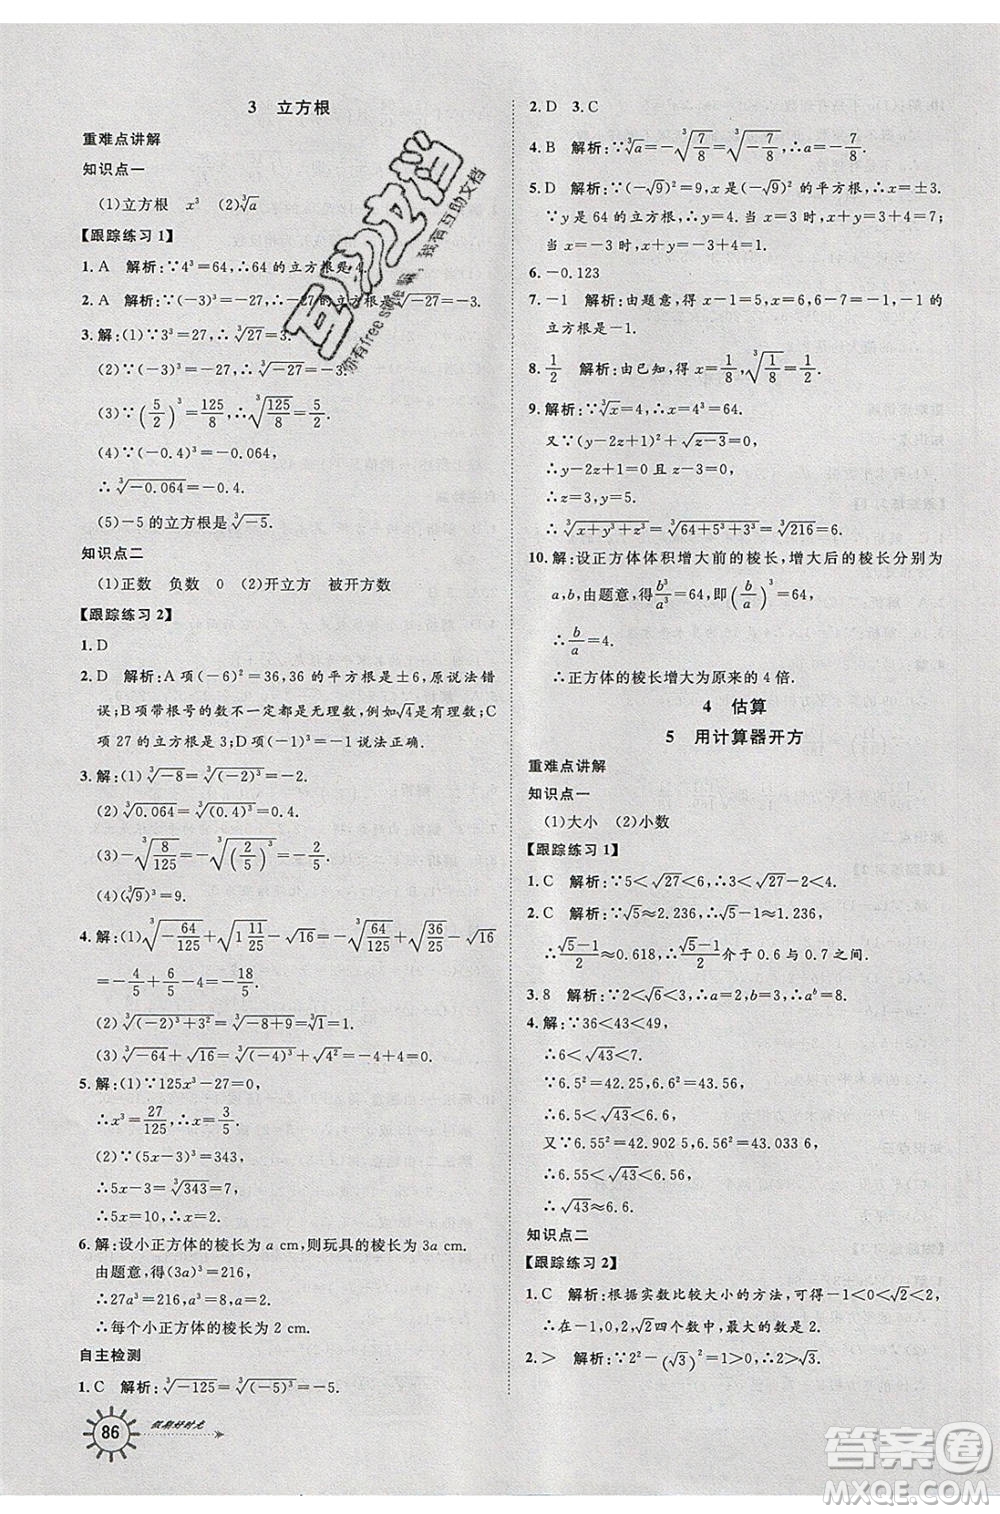 3 立方根
重难点讲解
知识点一
(1)立方根 x³ (2)∛a
【跟踪练习1】
1. A 解析:∵4³=64,∴64的立方根是4.
2. A 解析:∵(-3)³=-27,∴-27的立方根是∛-27=-3.
3. 解:(1)∵3³=27,∴∛27=3.
(2)∵(-3)³=-27,∴∛-27=-3.
(3)∵(5/2)³=125/8,∴∛(125/8)=5/2.
(4)∵(-0.4)³=-0.064,
∴∛-0.064=-0.4.
(5)-5的立方根是∛-5.
知识点二
(1)正数 负数 0 (2)开立方 被开方数
【跟踪练习2】
1. D
2. D 解析:A项(-6)²=36,36的平方根是±6,原说法错
误;B项带根号的数不一定都是无理数,例如√4是有理数;C
项27的立方根是3,原说法错误;D说法正确.
3. 解:(1)∛-8=∛(-2)³=-2.
(2)∛0.064=∛(0.4)³=0.4.
(3)-∛(8/125)=-∛(2/5)³=-2/5.
(4)(∛9)³=9.
4. 解:(1)∛(-64/125)+√(1 11/25)-√16=-4/5+√(36/25)-√16
=-4/5+6/5-4=-18/5.
(2)∛((-2)³+3²)=∛(-8+9)=∛1=1.
(3)∛-64+√16=-4+4=0.
5. 解:(1)∵125x³=27,
∴x³=27/125,∴x=3/5.
(2)∵(5x-3)³=343,
∴5x-3=∛343=7,
∴5x=10,∴x=2.
6. 解:设小正方体的棱长为a cm,则玩具的棱长为3a cm.
由题意,得(3a)³=216,
∴27a³=216,∴a³=8,∴a=2.
∴每个小正方体的棱长为2 cm.
自主检测
1. C 解析:∛-125=∛(-5)³=-5.
86
假期好时光
2. D 3. C
4. B 解析:∵∛a=-∛(7/8)=∛(-7/8),∴a=-7/8.
5. D 解析:∵(-√9)²=9,x是(-√9)²的平方根,∴x=±3.
∵y是64的立方根,∴y=4.当x=3时,x+y=3+4=7;
当x=-3时,x+y=-3+4=1.
6. -0.123
7. -1 解析:由题意,可得x-1=5,x=6,6-7=-1,-1的
立方根是-1.
8. 1/2 解析:由已知,得x=1/8,∛(1/8)=1/2.
9. 解析:∵∛x=4,∴x=4³=64.
又∵(y-2z+1)²+√(z-3)=0,
∴y-2z+1=0,z-3=0,
∴z=3,y=5.
∴∛(x+y³+z³)=∛(64+5³+3³)=∛216=6.
10. 解:设正方体体积增大前的棱长,增大后的棱长分别为
a,b,由题意,得b³/a³=64,即(b/a)³=64,
∴b/a=4.
∴正方体的棱长增大为原来的4倍.
4 估算
5 用计算器开方
重难点讲解
知识点一
(1)大小 (2)小数
【跟踪练习1】
1. C 解析:∵5<√27<6,∴7<√27+2<8.
2. C 解析:∵√5≈2.236,∴√5-1≈1.236,
∴(√5-1)/2≈0.618,∴(√5-1)/2介于0.6与0.7之间.
3. 8 解析:∵2<√6<3,∴a=2,b=3,∴bᵃ=8.
4. 解:∵36<43<49,
∴6<√43<7.
∵6.5²=42.25,6.6²=43.56,
∴6.5<√43<6.6,
又∵6.55²=42.902 5,6.56²=43.033 6,
∴6.55<√43<6.56,
∴√43≈6.6.
知识点二
【跟踪练习2】
1. C 解析:根据实数比较大小的方法,可得-1<0<√2<2,
∴在-1,0,2,√2四个数中,最大的数是2.
2. > 解析:∵2²-(√3)²=1>0,∴2>√3.
互助文档
你有free style嘛,我有互助文档
答案圈
MXQE.COM